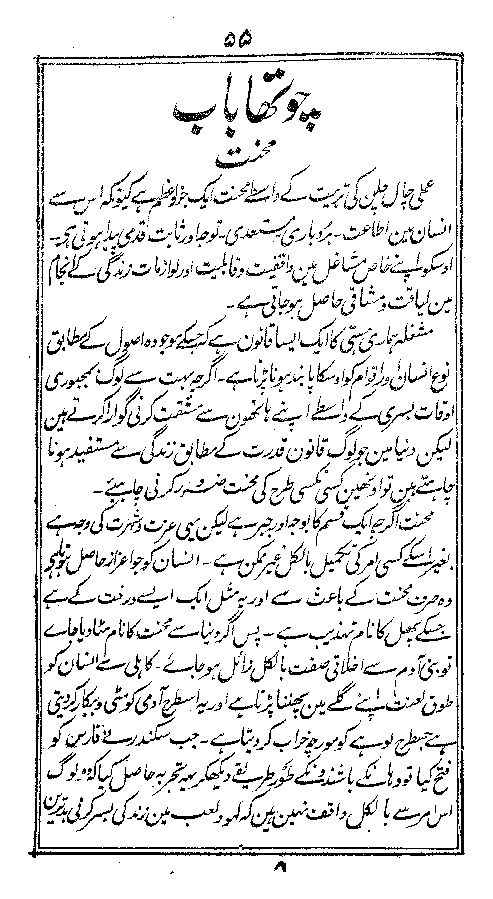 ۵۵
چوتھا باب
محنت
علی چال چلن کی تربیت کے واسطے محنت ایک جزو اعظم ہے کیونکہ اس سے
انسان مین اطاعت۔ بردباری مستعدی۔ توجہ اور ثابت قدمی پیدا ہوتی ہے۔
اوسکو اپنے خاص مشاغل مین واقفیت و قابلیت اور لوازمات زندگی کے انجام
مین لیاقت و مشاقی حاصل ہو جاتی ہے۔
مشغلہ ہماری ہستی کا ایک ایسا قانون ہے کہ جسکے موجودہ اصول کے مطابق
نوع انسان اور اقوام کو اوسکا پابند ہونا پڑتا ہے۔ اگرچہ بہت سے لوگ بمجبوری
اوقات بسری کے واسطے اپنے ہاتھون سے مشقت کرنی گوارا کرتے ہین
لیکن دنیا مین جو لوگ قانون قدرت کے مطابق زندگی سے مستفید ہونا
چاہتے ہین تو اونھین کسی نکسی طرح کی محنت ضرور کرنی چاہیے۔
محنت اگرچہ ایک قسم کا بوجھ اور جبر ہے لیکن یہی عزت و شہرت کی وجہ ہے
بغیر اسکے کسی امر کی تکمیل بالکل غیر ممکن ہے۔ انسان کو جو اعزاز حاصل
وہ صرف محنت کے باعث سے اور یہ مثل ایک ایسے درخت کے ہے
جسکے پھل کا نام تہذیب ہے۔ پس اگر دنیا سے محنت کا نام مٹا دیا جاے
تو بنی آدم سے اخلاقی صفت بالکل زائل ہو جاے۔ کاہلی سے انسان کو
طوق لعنت اپنے گلے مین پھننا پڑتا ہے اور یہ اسطرح آدمی کو مٹی و بیکار کر دیتی
ہے جسطرح لوہے کو مورچہ خراب کر دیتا ہے۔ جب سکندر نے فارس کو
فتح کیا تو وہانکے باشندونکے طور طریقے دیکھکر یہہ تجربہ حاصل کیا کہ وہ لوگ
اس امر سے بالکل واقف نہین ہین کہ لہو و لعب مین زندگی بسر کرنی بدترین
۸